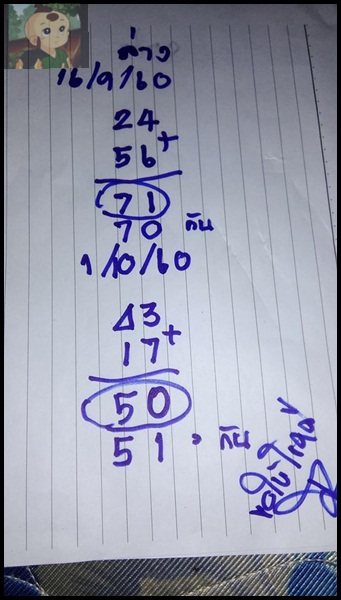 ล่าง
16/9/60
24
56+
71
70 กัน
1/10/60
43
17+
50
51, กัน